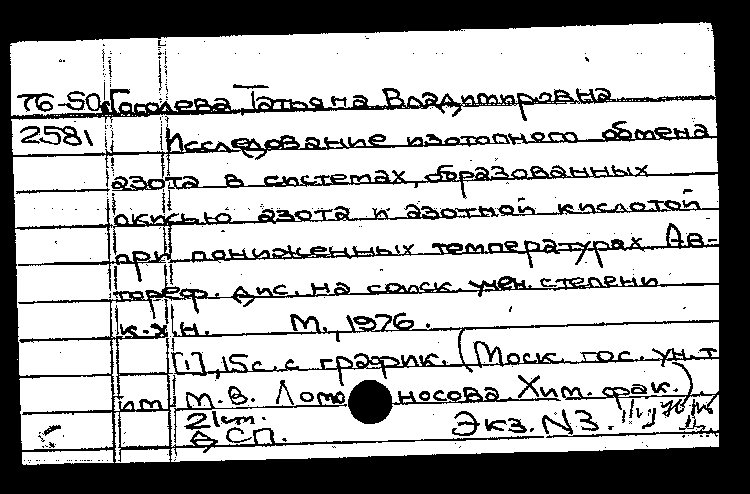 76-50 Гоголева Татьяна Владимировна
2581 Исследование изотопного обмена
азота в системах, образованных
окисью азота и азотной кислотой
при пониженных температурах Ав-
тореф. дис. на соиск. учен. степени
к.х.н. М., 1976.
[1], 15 с. с график. (Моск. гос. ун-т
им М.В. Ломоносова Хим. фак.).
21см.
ДСП. Экз. N3.